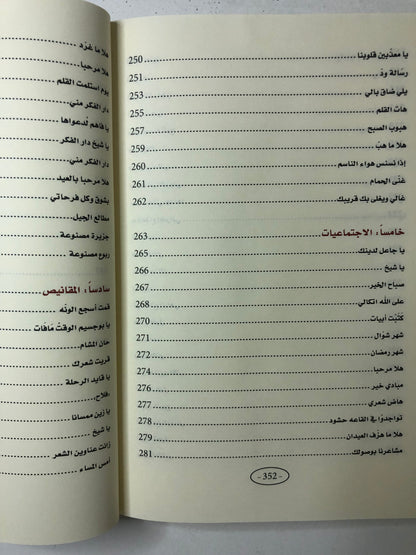 يا معذّبين قلوبنا 250
رسالة ودّ 251
يلي ضاق بالي 253
هات القلم 255
هبوب الصبح 258
هلا ما هبّ 259
إذا نسنس هواء الناسم 260
غنّى الحمام 261
غالي ويغلى بك قريبك 262
خامساً: الاجتماعيات 263
يا جاعل لدينك 265
يا شيخ 266
صباح الخير 267
على الله اتكالي 268
كتبت أبيات 270
شهر شوّال 271
شهر رمضان 272
هلا مرحبا 274
مبادي خير 276
هاض شعري 277
تواجدوا في القاعه حشود 278
هلا ما هزّف العيدان 279
مشاعرنا بوصولك 281
- 352 -
هلا ما غرّد
هلا مرحبا
يوم استلمت القلم
دار الفكر مني
يا فاهم لدعواها
يا شيخ دار الفكر
دار الفكر مني
هلا مرحبا بالعيد
بشوق وكل فرحاتي
مطالع الجيل
جزيرة مصنوعة
ربوع مصنوعة
سادساً: المقانيص
قمت أسجع الونّه
يا بوجسيم الوقت مافات
حان المشام
قريت شعرك
يا قايد الرحلة
فلاح
يا زين ممسانا
يا شيخ
زانت عناوين الشعر
أمس المساء